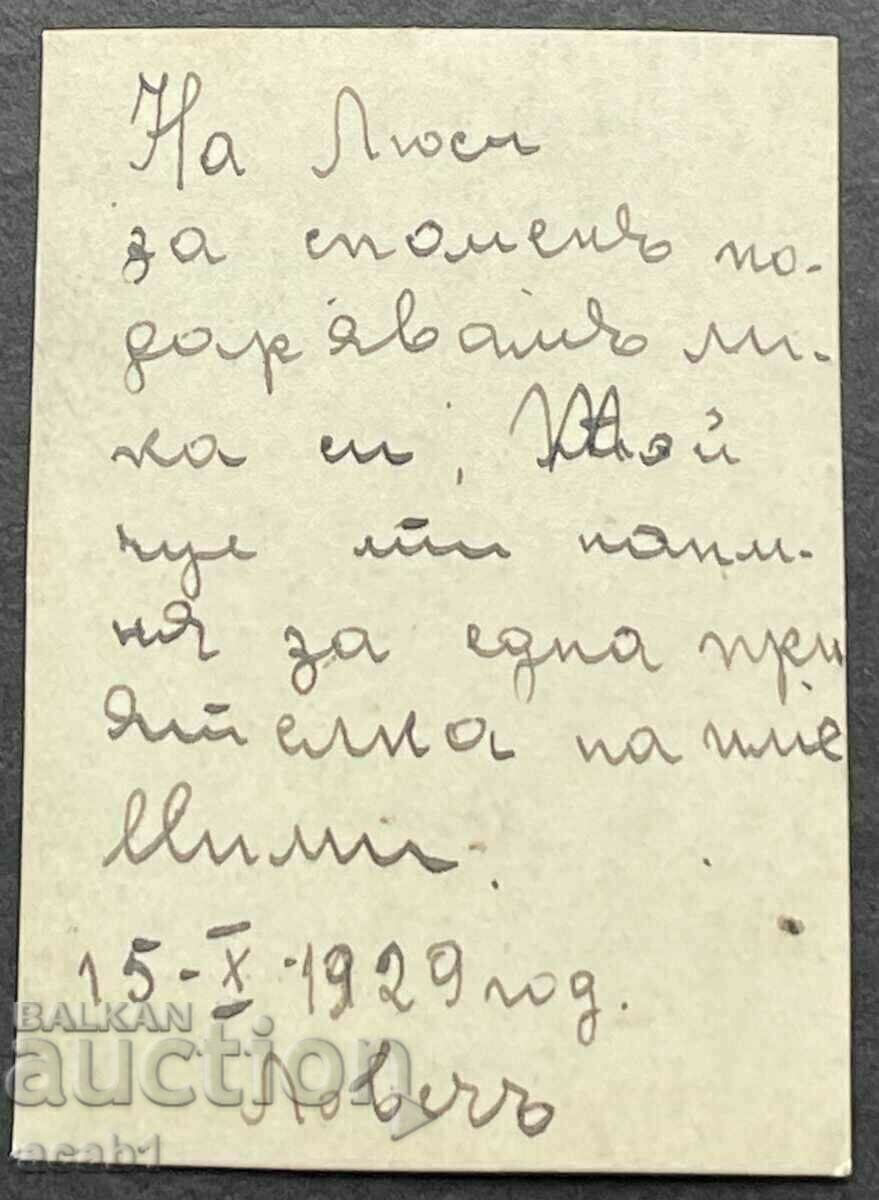 На Люси
за споменъ по-
дарявамъ ли-
ка си, Той
ще ти напом-
ня за една при
ятелка на име
Мими.
15-X-1929 год.
Ловечъ
BALKAN
auction
acab1